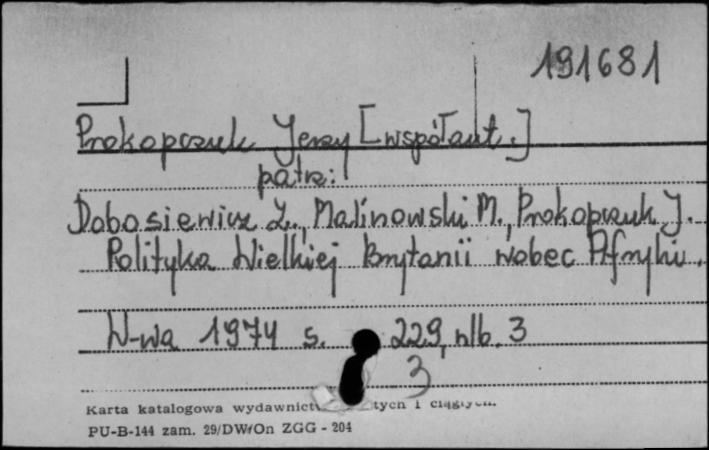 191681
Prokopczuk Jerzy [współaut.]
patrz:
Dobosiewicz Z., Malinowski M., Prokopczuk J.
Polityka Wielkiej Brytanii wobec Afryki.
W-wa 1974 s. 229, nlb. 3
3
Karta katalogowa wydawnict tych i ciągłych.
PU-B-144 zam. 29/DW/On ZGG - 204